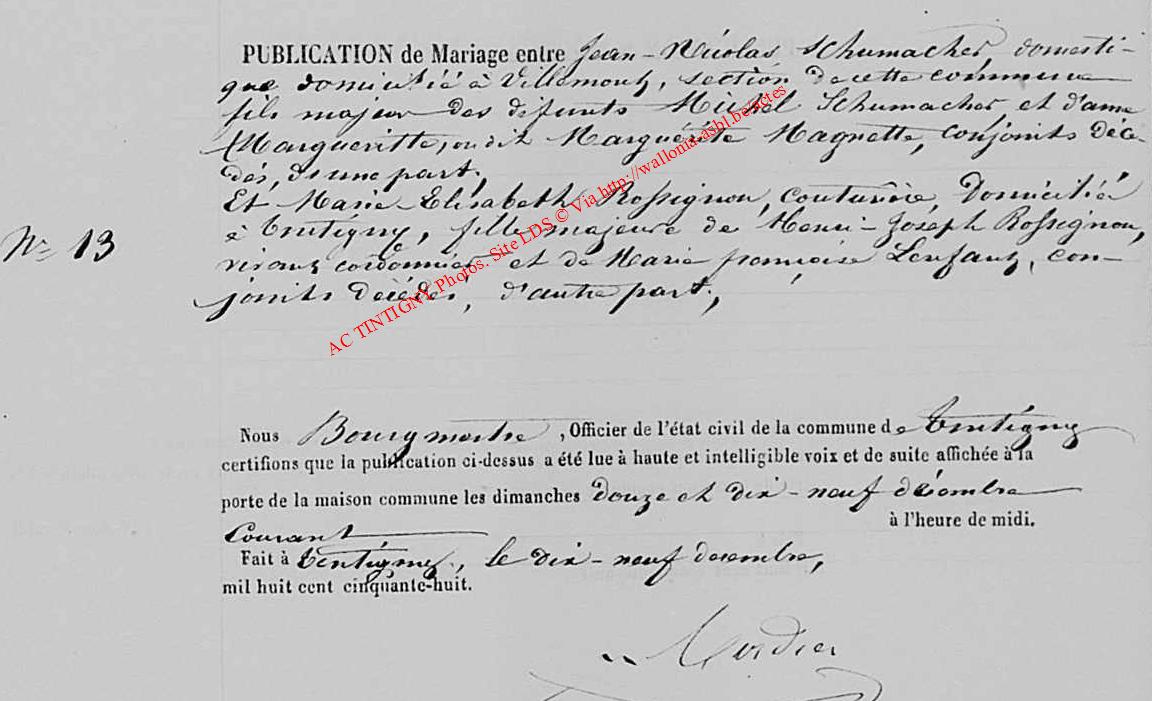 PUBLICATION de Mariage entre Jean-Nicolas Schumacher, domesti-
que domicilié à Villemont, section de cette commune
fils majeur des defunts Michel Schumacher et d'anne
Margueritte, ou dit Marguerite Magnette, conjoints décé-
dés, d'une part;
Et Marie-Elisabeth Rossignon, couturière, domiciliée
N° 13
à tintigny, fille majeure de Henri-Joseph Rossignon,
vivant cordonnier et de Marie françoise Lenfant, con-
joints décédés, d'autre part;
AC TINTIGNY Photos. Site LDS © Via http://wallonia-asbl.be/actes
Nous Bourgmestre, Officier de l'état civil de la commune de tintigny
certifions que la publication ci-dessus a été lue à haute et intelligible voix et de suite affichée à la
porte de la maison commune les dimanches douze et dix-neuf décembre
courant à l'heure de midi.
Fait à tintigny, le dix-neuf decembre,
mil huit cent cinquante-huit.